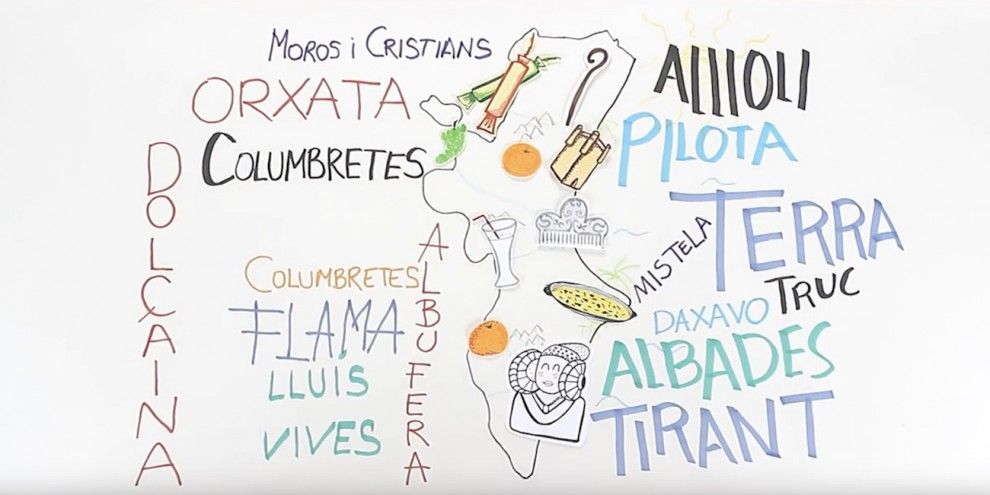 MOROS i CRISTIANS
ORXATA
COLUMBRETES
DOLÇAINA
COLUMBRETES
FLAMA
LLUÍS
VIVES
ALBUFERA
ALLIOLI
PILOTA
TERRA
MISTELA
TRUC
DAXAVO
ALBADES
TIRANT